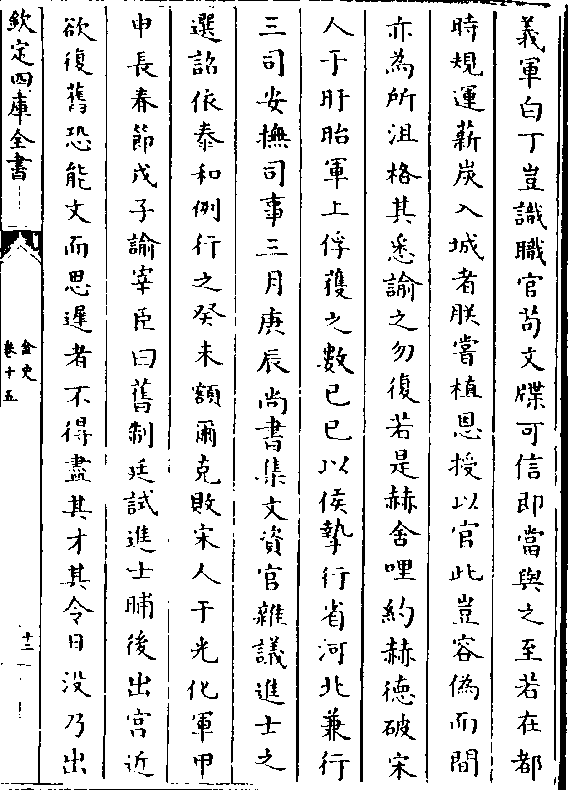 義軍白丁豈識職官苟文牒可信即當與之至若在都
時規運薪炭入城者朕嘗植恩授以官此豈容偽而間
亦為所沮格其悉諭之勿復若是赫舍哩約赫徳破宋
人于盱眙軍上俘獲之數己巳以侯摯行省河北兼行
三司安撫司事三月庚辰尚書集文資官雜議進士之
選詔依泰和例行之癸未額爾克敗宋人于光化軍甲
申長春節戊子諭宰臣曰舊制廷試進士晡後出宫近
欲復舊恐能文而思遲者不得盡其才其令日没乃出
欽定四庫全書
金史
卷十五
十三